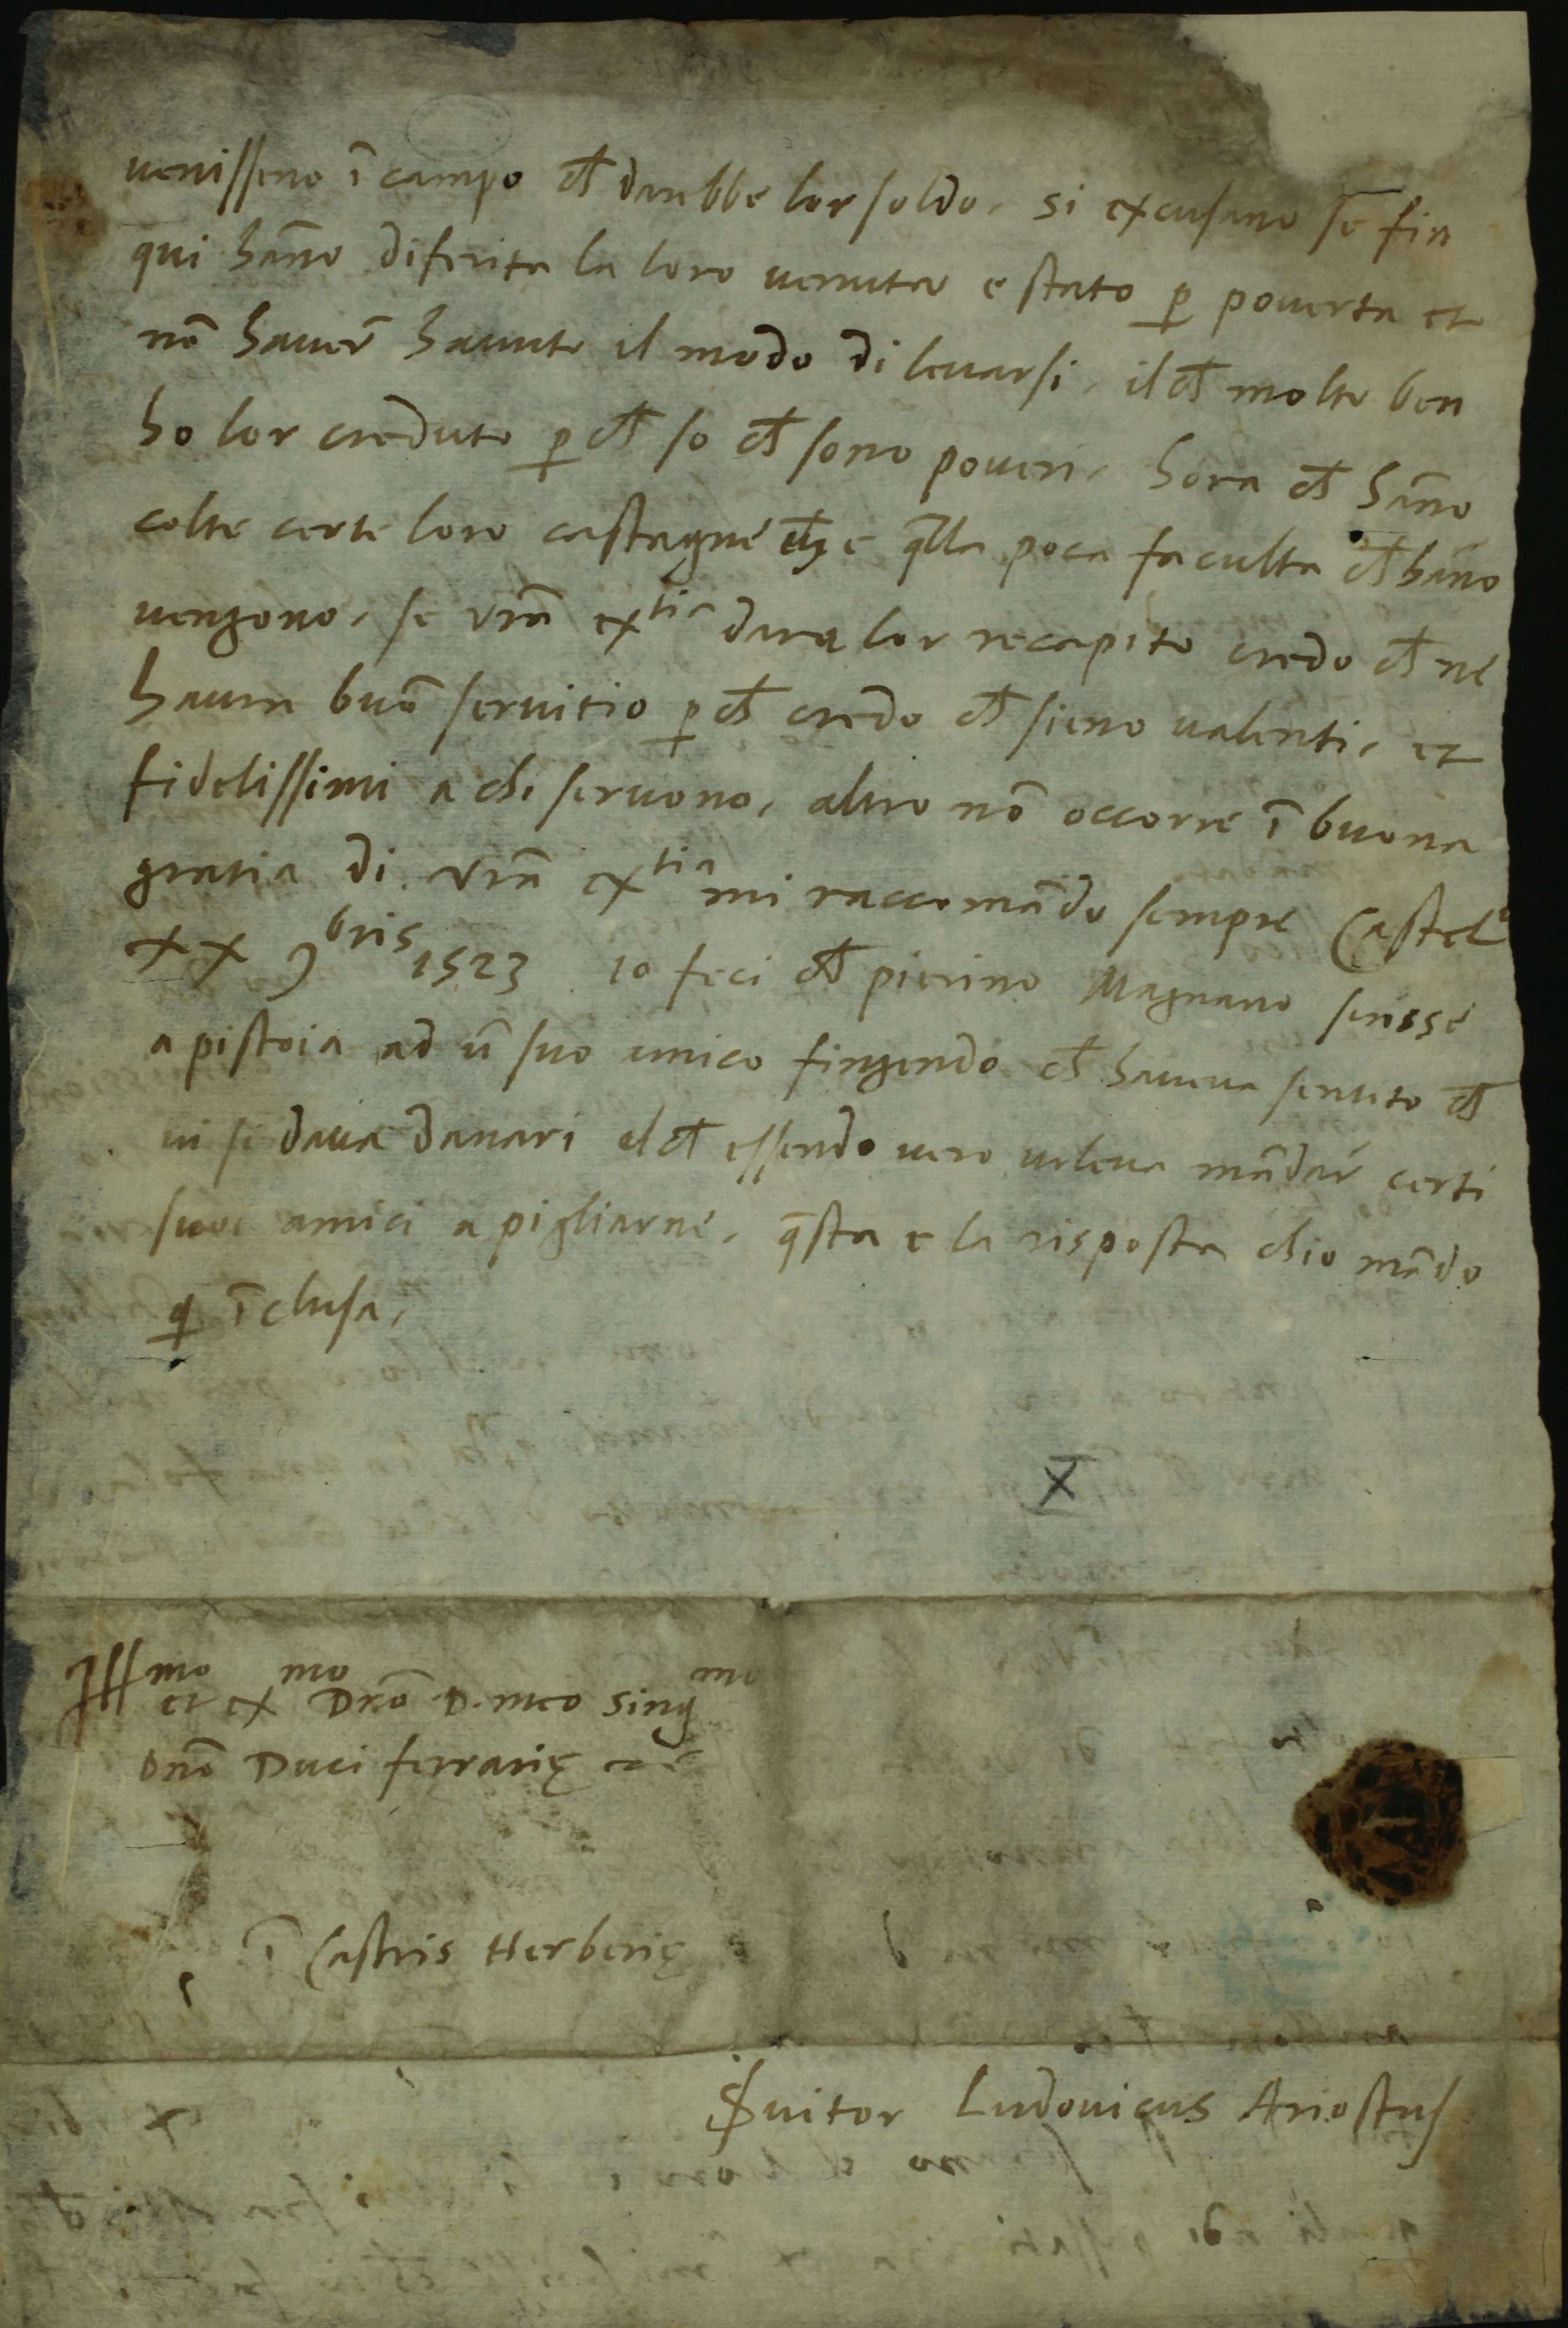 uenisseno ī campo ch̄ darebbe lor soldo, si excusano se fin
qui hāno diferita la loro uenuta e stato ꝑ pouerta et
nō hauer̄ hauuto il modo di leuarsi, il ch̄ molto ben
ho lor creduto ꝑ ch̄ so ch̄ sono poueri, hora ch̄ hāno
colte certe loro castagne e q̄lla poca faculta ch̄ hāno
uengono, se vr̄a ex^tia dara lor recapito credo ch̄ ne
haura buō seruitio ꝑ ch̄ credo ch̄ sieno ualenti, et
fidelissimi a chi seruono, altro nō occorre ī buona
gratia di vr̄a ex^tia mi raccomādo sempre Castel^i
xx 9^bris 1523 io feci ch̄ pierino Magnano scrisse
a pistoia ad ū suo amico fingendo ch̄ haueua sentito ch̄
ui si daua danari el ch̄ essendo uero uoleua mādar̄ certi
suoi amici a pigliarne, q̄sta e la risposta chio mādo
q̄ īclusa,
X
Ill^mo et ex^mo Dn̄o D. meo sing^mo
Dn̄o Duci ferrarię
ī Castris Herberię
Ꞩuitor Ludouicus Ariostus